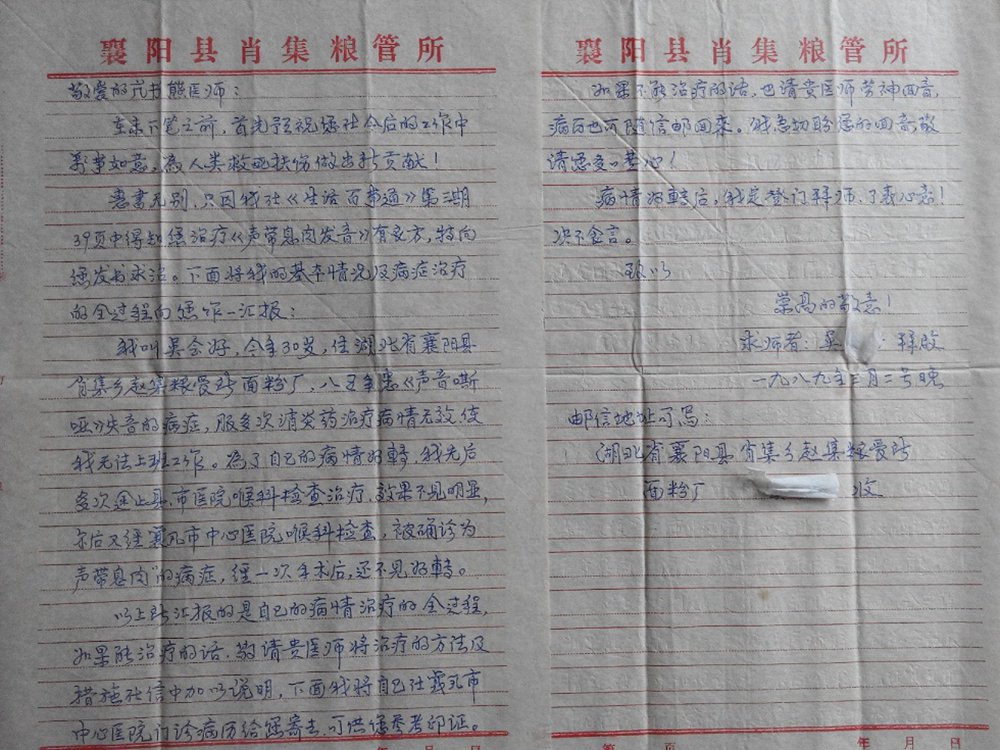 襄阳县肖集粮管所
敬爱的武书熊医师：
在未下笔之前，首先预祝您在今后的工作中
万事如意，为人类救死扶伤做出新贡献！
惠书无别，只因我在《生活百事通》第三期
39页中得知您治疗《声带息肉发音》有良方，特向
您发书求治。下面将我的基本情况及病症治疗
的全过程向您作一汇报：
我叫吴会好，今年30岁，住湖北省襄阳县
肖集乡赵集粮管站面粉厂，八五年患《声音嘶
哑》失音的病症，服多次消炎药治疗病情无效，使
我无法上班工作。为了自己的病情好轉，我先后
多次在上县、市医院喉科检查治疗，效果不见明显，
尔后又经襄凡市中心医院喉科检查，被确诊为
声带息肉"的病症，经一次手术后，还不见好轉。
以上所汇报的是自己的病情治疗的全过程，
如果能治疗的话，敬请贵医师将治疗的方法及
措施在信中加以说明，下面我将自己在襄凡市
中心医院门诊病历给您寄去，可供您参考印证。
年 月 日
襄阳县肖集粮管所
如果不能治疗的话，也请贵医师劳神回音，
病历也可随信邮回来。我急切盼您的回音敬
请您安心！
病情好轉后，我定登门拜师，了表心意！
决不食言。
致以
崇高的敬意！
求师者：吴 ：拜啟
一九八九年三月二号晚
邮信地址可写：
湖北省襄阳县肖集乡赵集粮管站
面粉厂 收
第 页 年 月 日